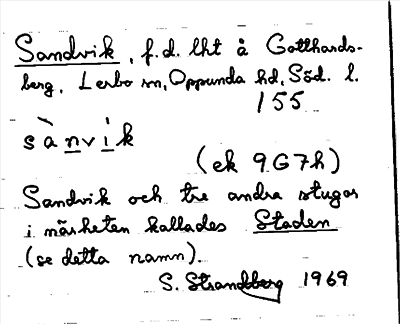 Sandvik, f.d. lht å Gotthards-
berg, Lerbo sn, Oppunda hd, Söd. l.
155
sànvi̇k
(ek 9G7h)
Sandvik och tre andra stugor
i närheten kallades Staden
(se detta namn).
S. Strandberg 1969